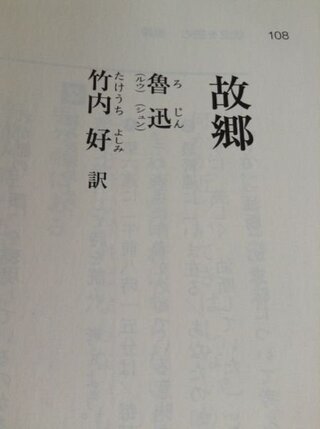 108
故郷
魯迅
ろじん
(ルウ)(シュン)
竹内好 訳
たけうちよしみ